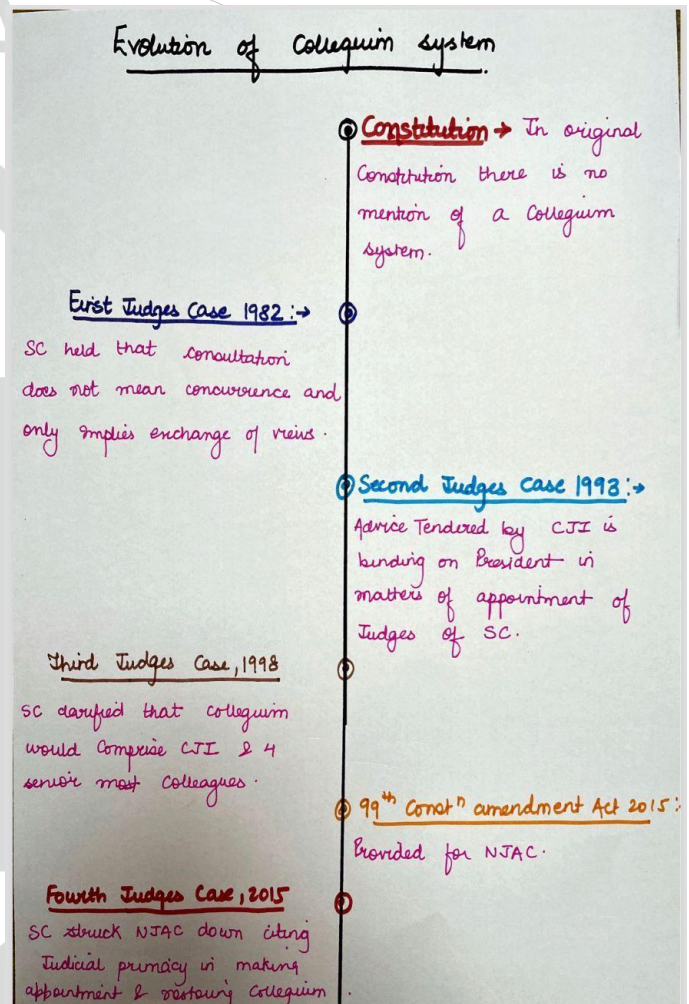 Evolution of Collegium system
Constitution → In original
Constitution there is no
mention of a Collegium
system.
First Judges Case 1982:→
SC held that consultation
does not mean concurrence and
only implies exchange of views.
Second Judges Case 1993:→
Advice Tendered by CJI is
binding on President in
matters of appointment of
Judges of SC.
Third Judges Case, 1998
SC clarified that collegium
would Comprise CJI & 4
senior most Colleagues.
99th Constn amendment Act 2015:
Provided for NJAC.
Fourth Judges Case, 2015
SC struck NJAC down citing
Judicial primacy in making
appointment & restoring Collegium.